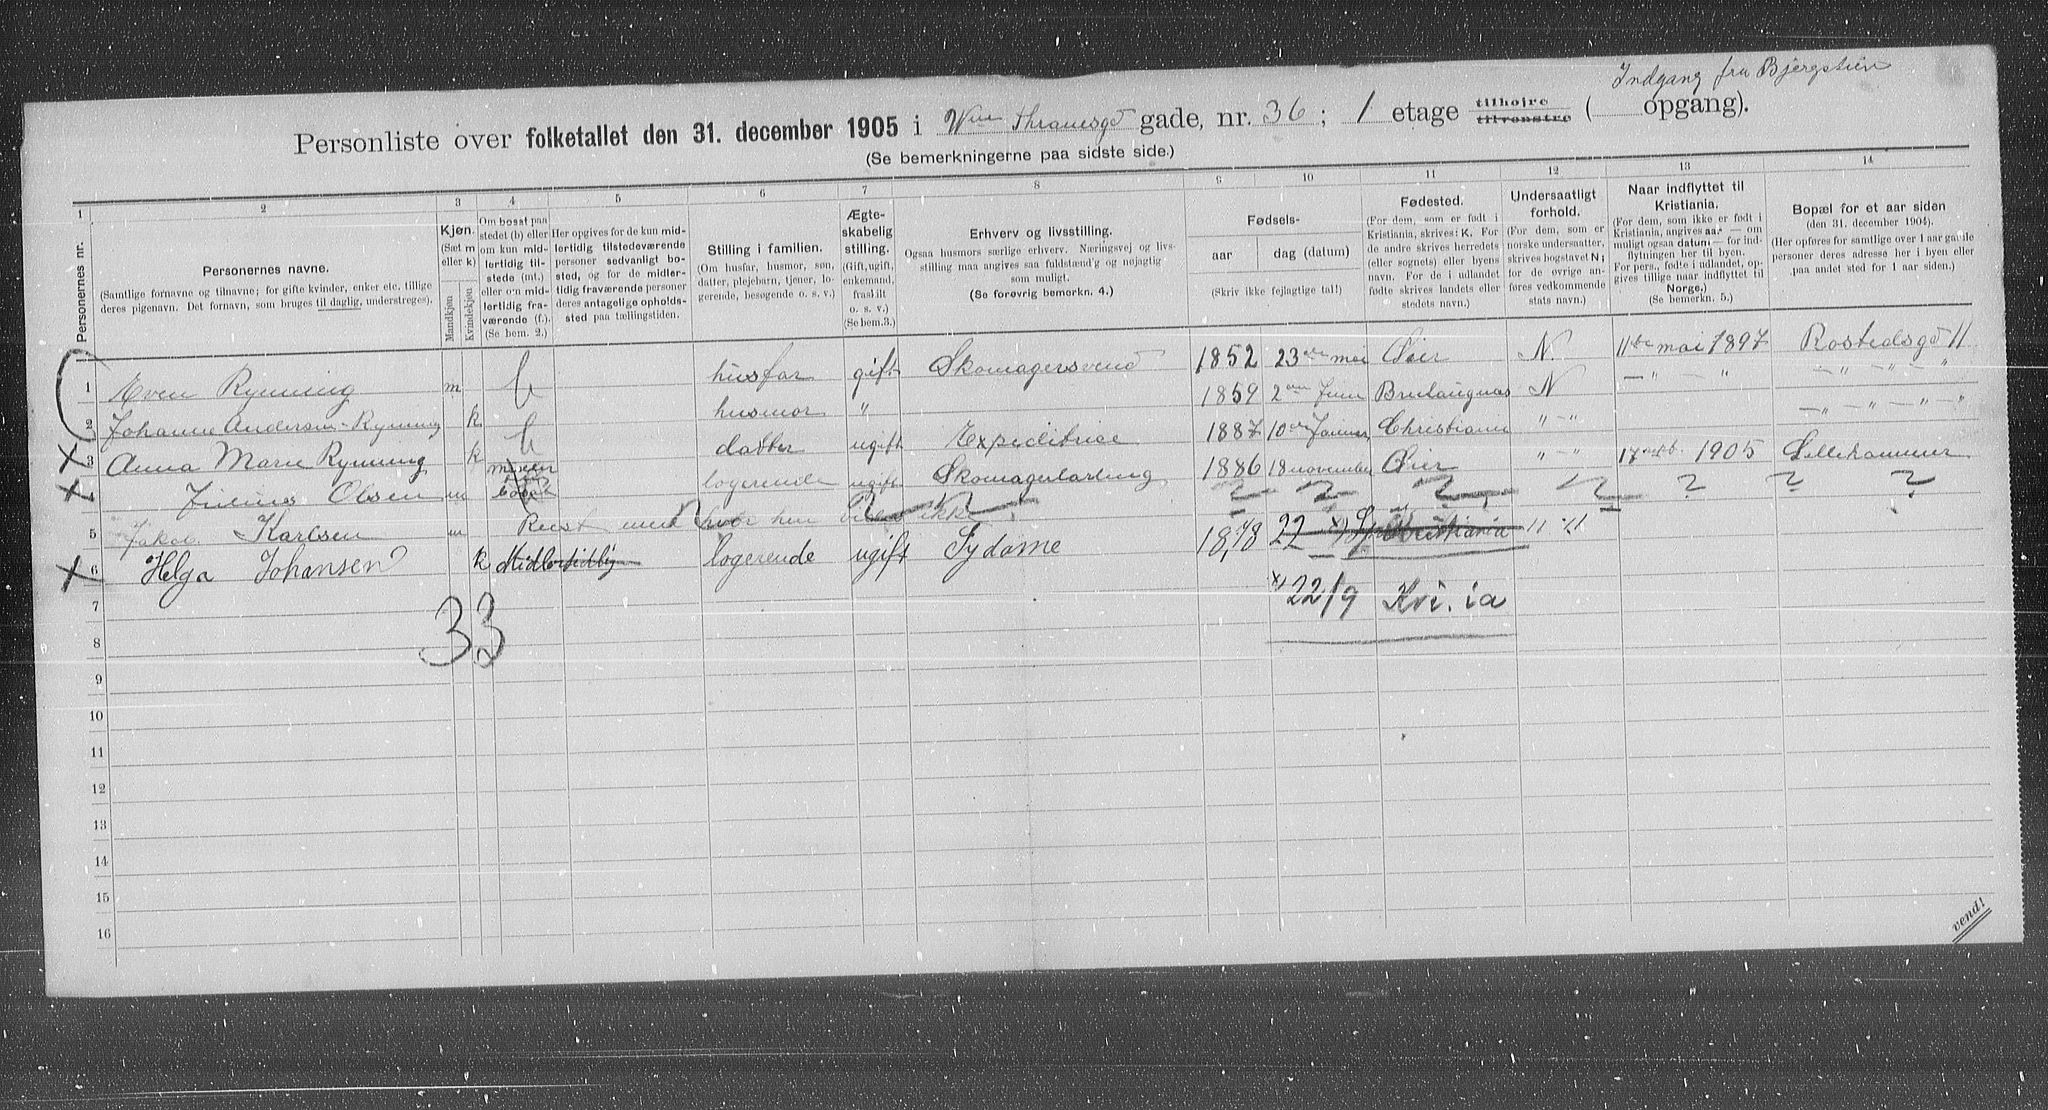 Indgang fra Bjergstien
Personliste over folketallet den 31. december 1905 i Wm Thranesgd gade, nr. 36 ; 1 etage tilhøjre tilvenstre ( opgang).
(Se bemerkningerne paa sidste side.)
1 2 3 4 5 6 7 8 9 10 11 12 13 14
Personernes nr.
Personernes navne.
(Samtlige fornavne og tilnavne; for gifte kvinder, enker etc. tillige deres pigenavn. Det fornavn, som bruges til daglig, understreges).
Kjøn.
(Sæt m eller k)
Mandkjøn
Kvindekjøn
Om bosat paa stedet (b) eller om kun midlertidig tilstede (mt.) eller om midlertidig fraværende (f.). (Se bem. 2.)
Her opgives for de kun midlertidig tilstedeværende personer sedvanligt bosted, og for de midlertidig fraværende personer deres antagelige opholdssted paa tællingstiden.
Stilling i familien.
(Om husfar, husmor, søn, datter, plejebarn, tjener, logerende, besøgende o. s. v.)
Ægteskabelig stilling.
(Gift, ugift, enkemand, fraskilt o. s. v.)
(Se bem.3.)
Erhverv og livsstilling.
Ogsaa husmors særlige erhverv. Næringsvej og livsstilling maa angives saa fuldstænd'g og nøjagtig som muligt.
(Se forøvrig bemerkn. 4.)
Fødsels-
aar
dag (datum)
(Skriv ikke fejlagtige tal!)
Fødested.
(For dem, som er født i Kristiania, skrives: K. For de andre skrives herredets (eller sognets) eller byens navn. For de i udlandet fødte skrives landets eller stedets navn.)
Undersaatligt forhold.
(For dem, som er norske undersaatter, skrives bogstavet N; for de øvrige anføres vedkommende stats navn.)
Naar indflyttet til Kristiania.
(For dem, som ikke er født i Kristiania, angives aar — om muligt ogsaa datum — for indflytningen her til byen. For pers., fødte i udlandet, opgives tillige naar indflyttet til Norge.)
(Se bemerkn. 5.)
Bopæl for et aar siden
(den 31. december 1904).
(Her opføres for samtlige over 1 aar gamle personer deres adresse her i byen eller paa andet sted for 1 aar siden.)
1 Even Rynning m b husfar gift Skomagersvend 1852 23de mai Øier N. 11te mai 1897 Rostedsgd 11
2 Johanne Andersen-Rynning k husmor " 1859 2den Juni Brulaugnas N — " — " — " — " — " — "
3 Anna Marie Rynning k b datter ugift Expeditrice 1887 10de Januar Christiania " — " — " — " — " — "
4 Julius Olsen m logerende ugift Skomagerlærling 1886 18 november Øier " — " 1905 Lillehammer
5 Jakob Karlsen m Reist med hvor hen vides ikke ? ? ? ? ? ? ? ? ?
6 Helga Johansen k Midlertidig logerende ugift Sydame 1878 22 x) Kristiania " "
7 x) 22/9 Kri.ia
33
8
9
10
11
12
13
14
15
16
vend!